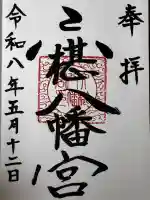 奉拝
八幡宮
令和八年五月十二日